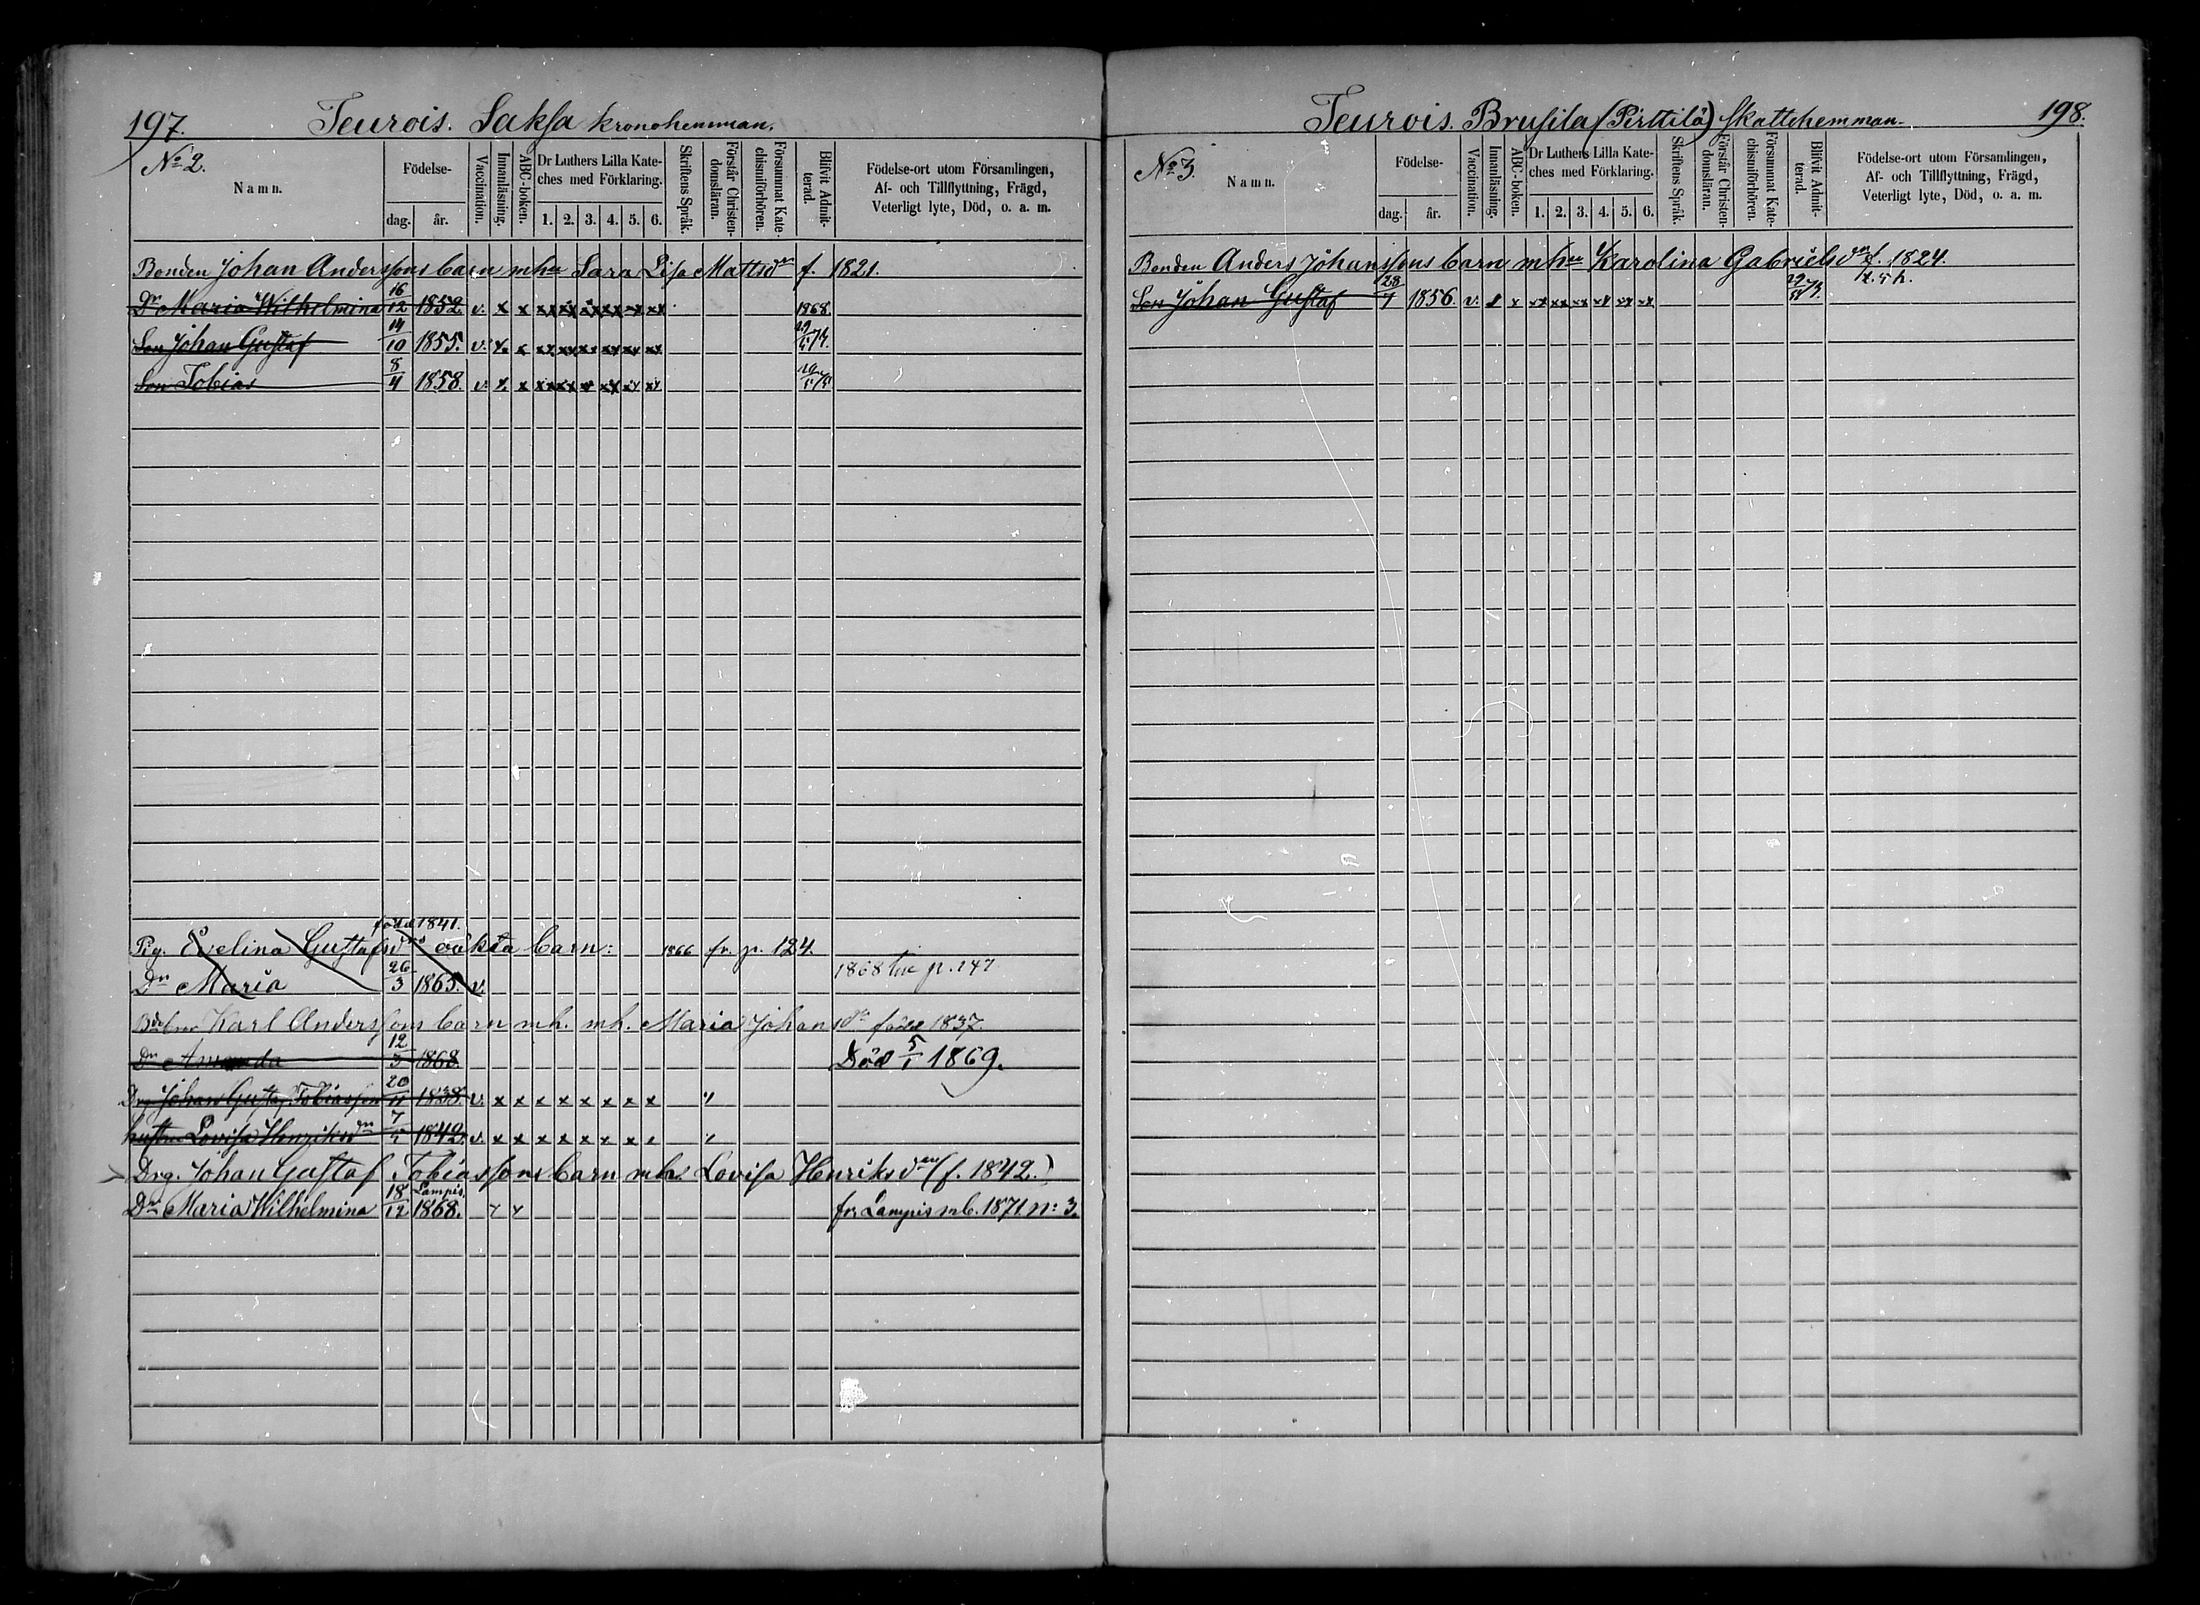 197.
Teurois. Saksa kronohemman.
No 2.
Namn.
Födelse-
dag.
år.
Vaccination.
Innanläsning.
ABC-boken.
Dr Luthers Lilla Kate-
ches med Förklaring.
1. 2. 3. 4. 5. 6.
Skriftens Språk.
Förstår Christen-
domsläran.
Försummat Kate-
chismiförhören.
Blifvit Admit-
terad.
Födelse-ort utom Församlingen,
Af- och Tillflyttning, Frägd,
Veterligt lyte, Död, o. a. m.
Bonden Johan Anderssons barn mhu Sara Lisa Mattsdr f. 1821.
Dr Maria Wilhelmina 16/12 1852 v. x x xx xx xx xx xx xx 1868.
Son Johan Gustaf 14/10 1855. v. x x xx xx xx xx xx xx
Son Tobias 8/4 1858. v. x x xx xx xx xx xx xx
född 1841.
Pig. Evelina Gustafsdrs oäkta barn: 1866 fr. p. 124.
Dr Maria 26/3 1865. v. 1868 p. 147
Karl Anderssons barn m h. m h. Maria Johansdr född 1837.
Dr Amanda 12/3 1868. Död 5/1 1869.
Drg Johan Gustaf Tobiasson 20/11 1838. v. x x x x x x x x
hustru Lovisa Henriksdr 7/5 1842. v. x x x x x x x x
Drg. Johan Gustaf Tobiassons barn mhu. Lovisa Henriksdr (f. 1842.)
Dr Maria Wilhelmina 18/12 Lampis 1868. x x fr. Lampis mb. 1871 No 3.
198.
Teurois. Brusila (Pirttilä) Skattehemman.
No 3.
Namn.
Födelse-
dag.
år.
Vaccination.
Innanläsning.
ABC-boken.
Dr Luthers Lilla Kate-
ches med Förklaring.
1. 2. 3. 4. 5. 6.
Skriftens Språk.
Förstår Christen-
domsläran.
Försummat Kate-
chismiförhören.
Blifvit Admit-
terad.
Födelse-ort utom Församlingen,
Af- och Tillflyttning, Frägd,
Veterligt lyte, Död, o. a. m.
Bonden Anders Johanssons barn mhu Karolina Gabrielsdr f. 1824.
Son Johan Gustaf 28/4 1856. v. x x xx xx xx xx xx xx